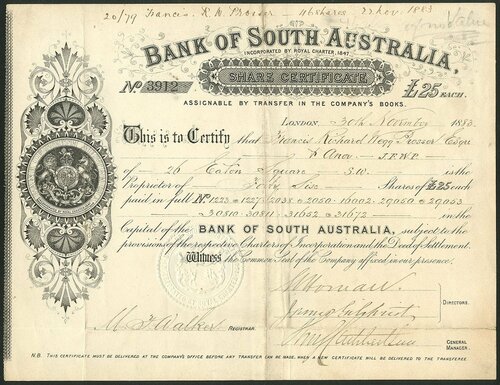 20/79 Francis R. W. Prosser 46 shares 22 Nov. 1883
BANK OF SOUTH AUSTRALIA,
INCORPORATED BY ROYAL CHARTER, 1847.
SHARE CERTIFICATE
No 3912 £25 EACH.
ASSIGNABLE BY TRANSFER IN THE COMPANY'S BOOKS.
LONDON, 30th November 1883
This is to Certify that Francis Richard Wegg Prosser Esqre
of 26 Eaton Square S.W. is the
Proprietor of Forty Six Shares of £25 each
paid in full No 1223 1227 2038 2050 16002 29050 29053
30810 30811 31652 31672 in the
Capital of the BANK OF SOUTH AUSTRALIA, subject to the
provisions of the respective Charters of Incorporation and the Deed of Settlement.
Witness the Common Seal of the Company affixed in our presence.
DIRECTORS.
M. F. Walker REGISTRAR.
GENERAL MANAGER.
N.B. THIS CERTIFICATE MUST BE DELIVERED AT THE COMPANY'S OFFICE BEFORE ANY TRANSFER CAN BE MADE, WHEN A NEW CERTIFICATE WILL BE DELIVERED TO THE TRANSFEREE.